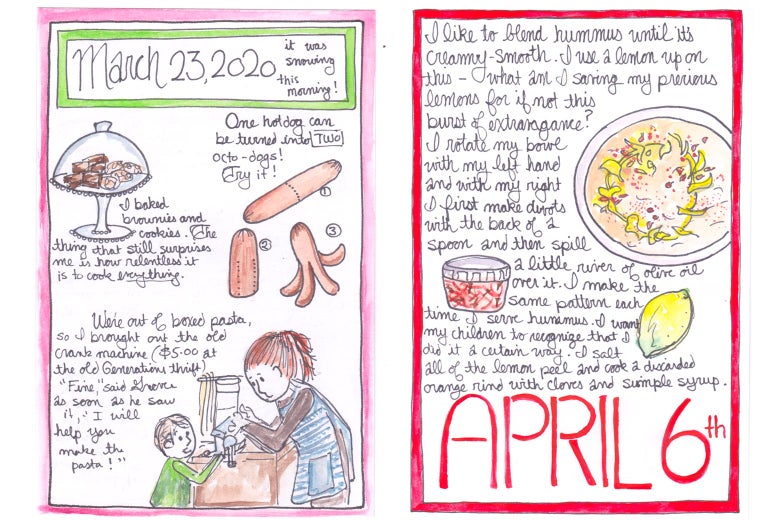 March 23, 2020
it was
snowing
this
morning!
One hotdog can
be turned into TWO
octo-dogs!
Try it!
1
2
3
I baked
brownies and
cookies. The
thing that still surprises
me is how relentless it
is to cook everything.
We're out of boxed pasta,
so I brought out the old
crank machine ($5.00 at
the old Generations thrift)
"Fine," said
as soon as he saw
it, "I will
help you
make the
pasta!"
I like to blend hummus until it's
creamy-smooth. I use a lemon up on
this - what am I saving my precious
lemons for if not this
burst of extravagance?
I rotate my bowl
with my left hand
and with my right
I first make divots
with the back of a
spoon and then spill
a little river of olive oil
over it. I make the
same pattern each
time I serve hummus. I want
my children to recognize that I
did it a certain way. I salt
all of the lemon peel and cook a discarded
orange rind with cloves and simple syrup.
APRIL 6th